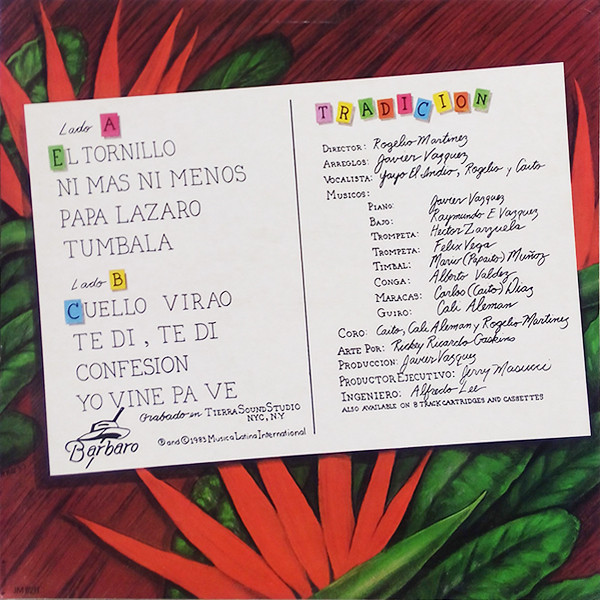 Lado A
EL TORNILLO
NI MAS NI MENOS
PAPA LAZARO
TUMBALA
Lado B
CUELLO VIRAO
TE DI, TE DI
CONFESION
YO VINE PA VE
Grabado en TIERRA SOUND STUDIO
NYC, NY
Bárbaro
℗ and © 1983 Musica Latina International
TRADICION
DIRECTOR: Rogelio Martinez
ARREGLOS: Javier Vazquez
VOCALISTA: Yayo El Indio, Rogelio y Caito
MUSICOS:
PIANO: Javier Vazquez
BAJO: Raymundo E Vazquez
TROMPETA: Hector Zarzuela
TROMPETA: Felix Vega
TIMBAL: Mario (Papaito) Muñoz
CONGA: Alberto Valdez
MARACAS: Carlos (Caito) Diaz
GUIRO: Cali Aleman
CORO: Caito, Cali Aleman y Rogelio Martinez
ARTE POR: Rickey Ricardo Gaskins
PRODUCCION: Javier Vazquez
PRODUCTOR EJECUTIVO: Jerry Masucci
INGENIERO: Alfredo Lee
ALSO AVAILABLE ON 8 TRACK CARTRIDGES AND CASSETTES